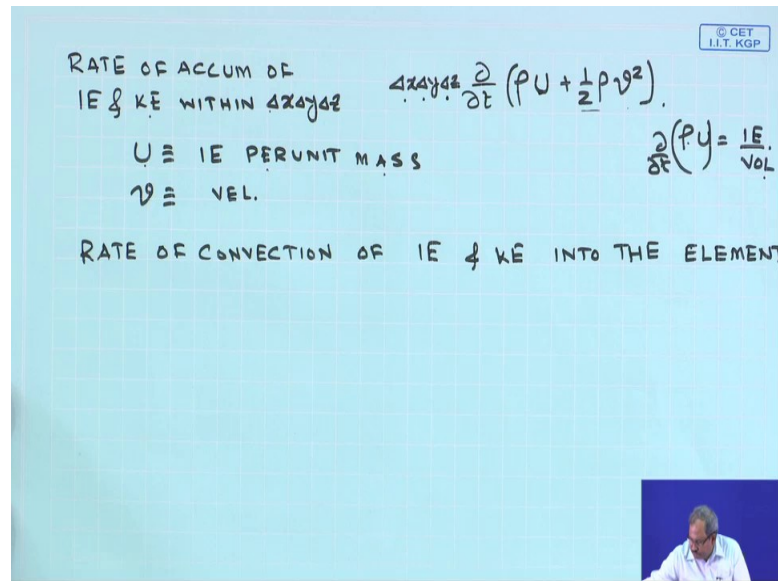 © CET
I.I.T. KGP
RATE OF ACCUM OF
IE & KE WITHIN ΔxΔyΔz
ΔxΔyΔz ∂/∂t (ρU + 1/2 ρv²).
U ≡ IE PER UNIT MASS
∂/∂t (ρU) = IE/VOL
v ≡ VEL.
RATE OF CONVECTION OF IE & KE INTO THE ELEMENT